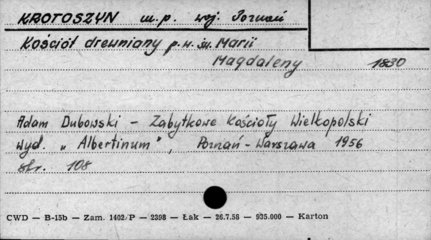 KROTOSZYN m.p. woj. Poznań
Kościół drewniany p.w. św. Marii
Magdaleny 1830
Adam Dubowski - Zabytkowe Kościoły Wielkopolski
Wyd. „Albertinum", Poznań-Warszawa 1956
str. 108
CWD — B-15b — Zam. 1402/P — 2398 — Łak — 26.7.58 — 935.000 — Karton